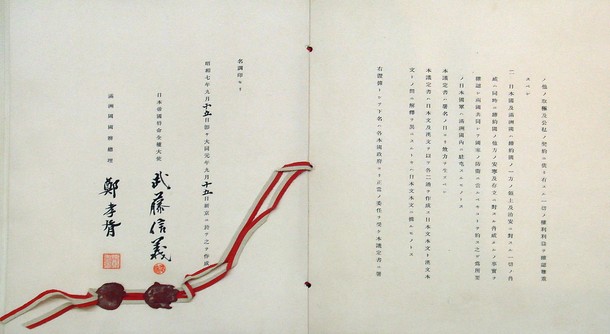 ノ他ノ取極及公私ノ契約ニ依リ有スル一切ノ權利利益ヲ確認尊重
スベシ
二、日本國及滿洲國ハ締約國ノ一方ノ領土及治安ニ對スル一切ノ脅
威ハ同時ニ締約國ノ他方ノ安寧及存立ニ對スル脅威タルノ事實ヲ
確認シ兩國共同シテ國家ノ防衛ニ當ルベキコトヲ約ス之ガ爲所要
ノ日本國軍ハ滿洲國内ニ駐屯スルモノトス
本議定書ハ署名ノ日ヨリ效力ヲ生ズベシ
本議定書ハ日本文及漢文ヲ以テ各二通ヲ作成ス日本文本文ト漢文本
文トノ間ニ解釋ヲ異ニスルトキハ日本文本文ニ據ルモノトス
右證據トシテ下名ハ各本國政府ヨリ正當ノ委任ヲ受ケ本議定書ニ署
名調印セリ
昭和七年九月十五日卽チ大同元年九月十五日新京ニ於テ之ヲ作成ス
日本帝國特命全權大使 武藤信義
滿洲國國務總理 鄭孝胥